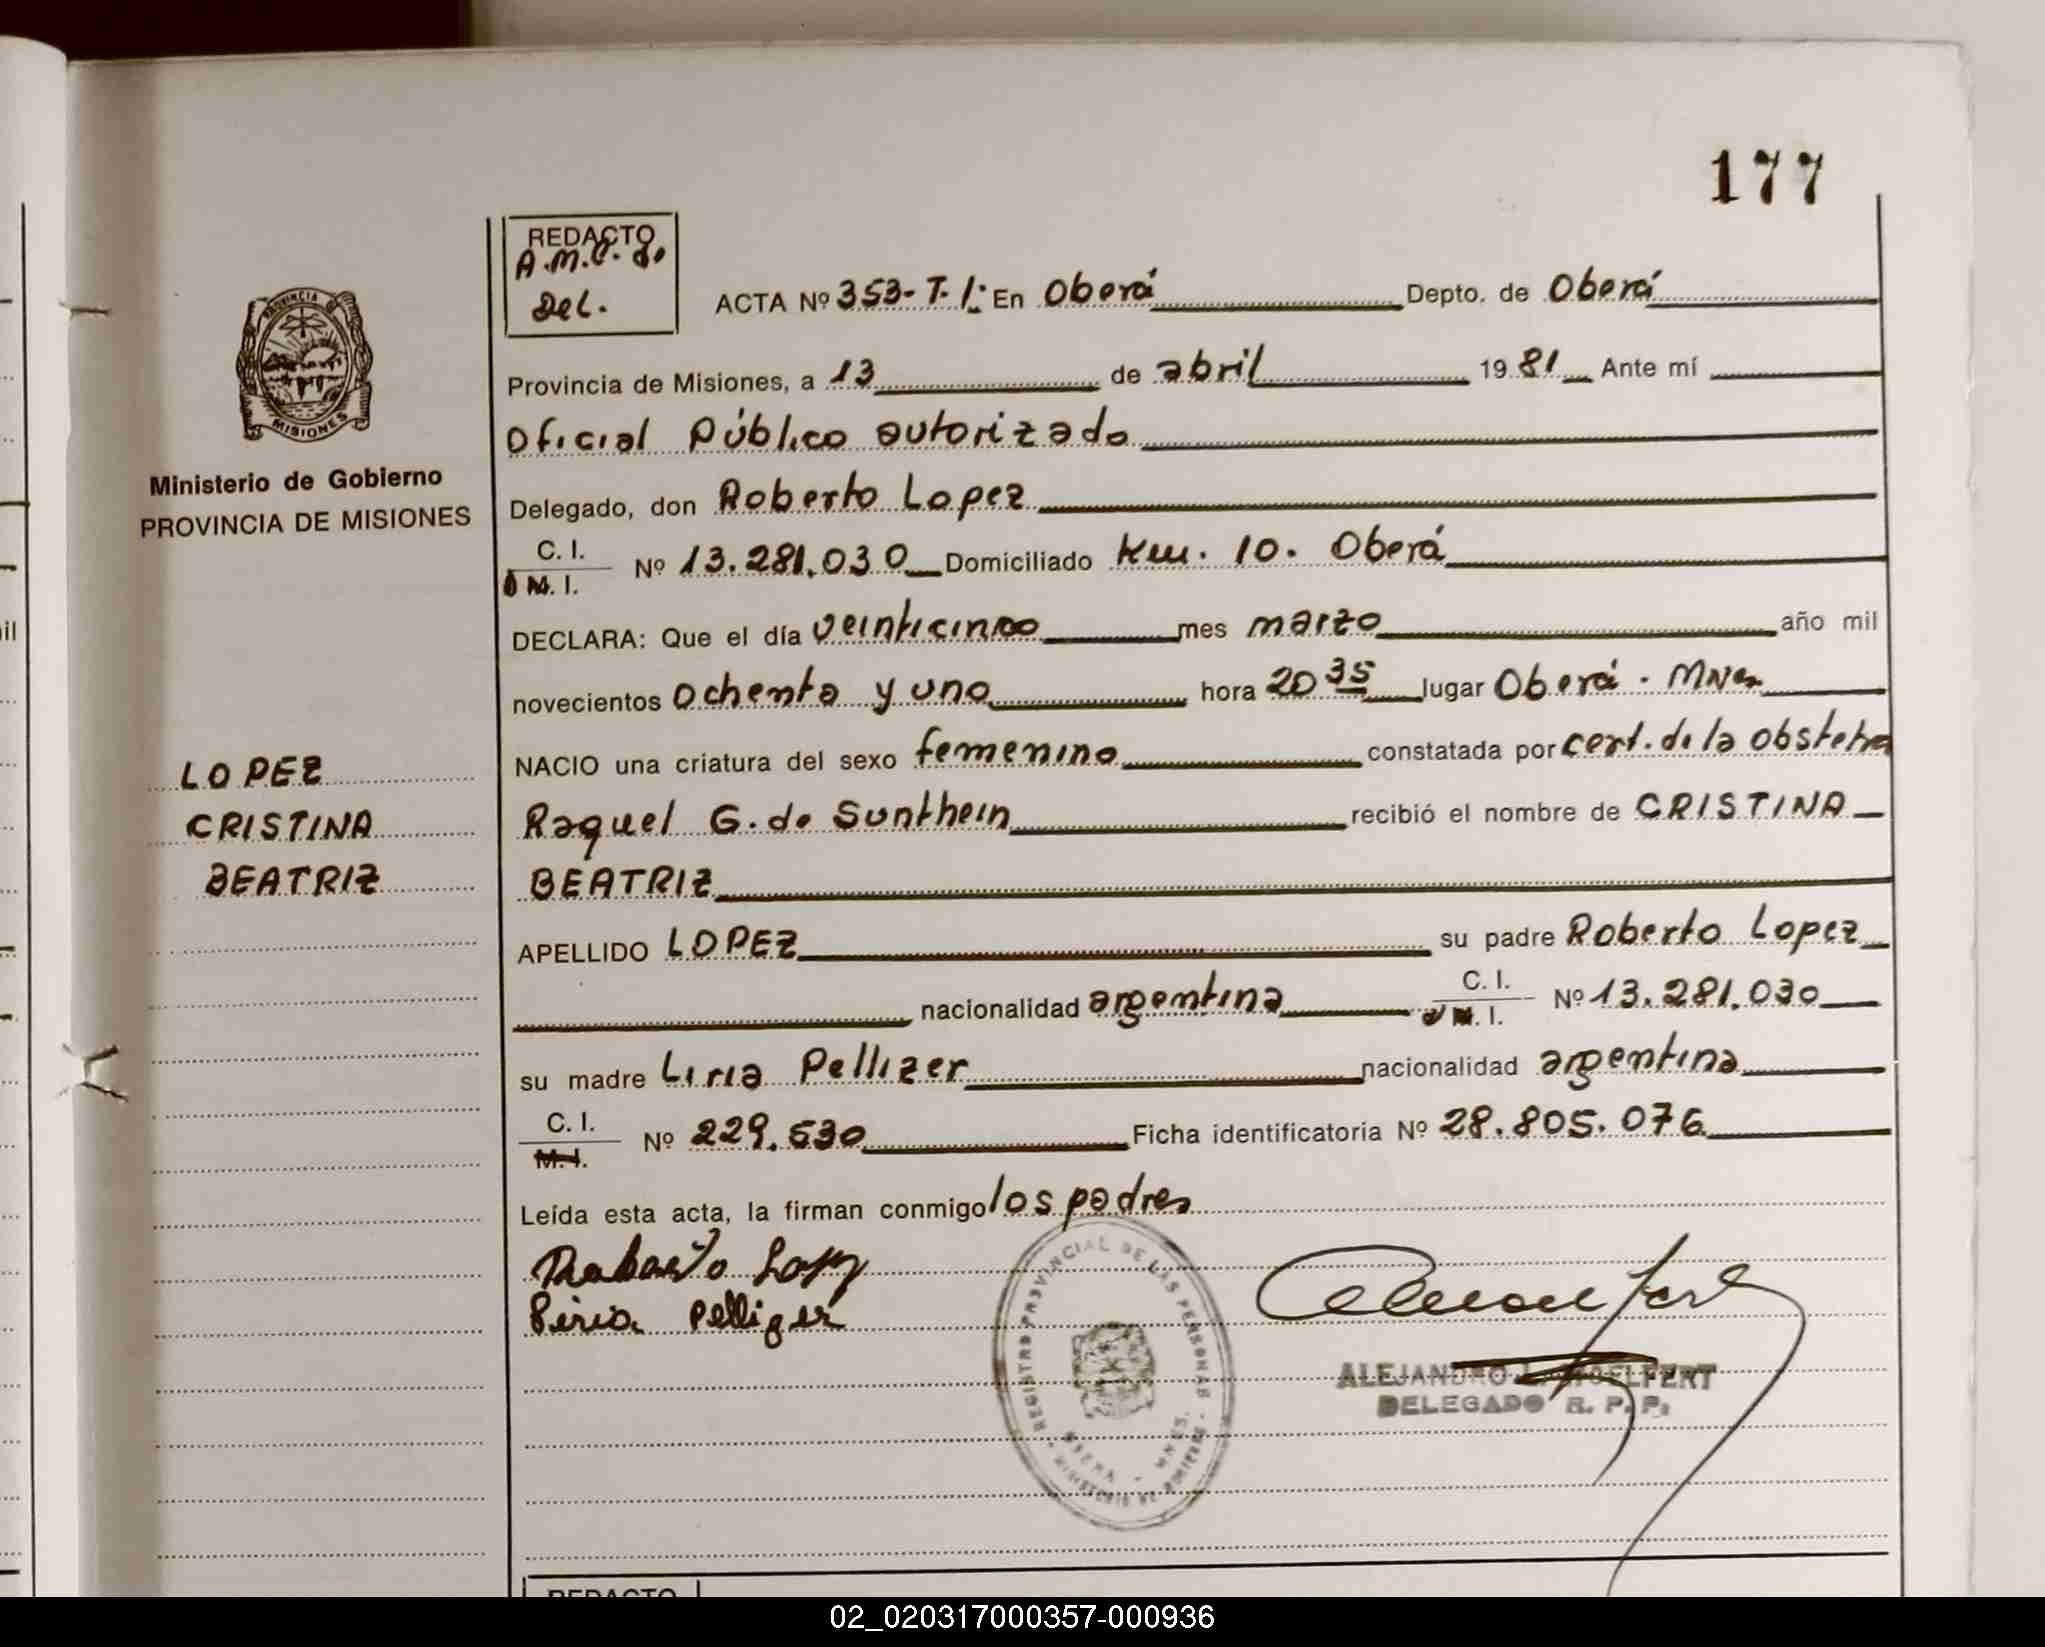 177
REDACTO
A.M.C. de
Del.
ACTA Nº 353-T.I: En Oberá Depto. de Oberá
Provincia de Misiones, a 13 de abril 19 81 Ante mí
Oficial Público autorizado
Delegado, don Roberto Lopez
C. I.
M. I. Nº 13.281.030 Domiciliado Km. 10. Oberá
DECLARA: Que el día veinticinco mes marzo año mil
novecientos ochenta y uno hora 20 35 lugar Oberá. Mnes
NACIO una criatura del sexo femenino constatada por cert. de la obstetra
Raquel G. de Sunthein recibió el nombre de CRISTINA
BEATRIZ
APELLIDO LOPEZ su padre Roberto Lopez
nacionalidad argentina C. I. M. I. Nº 13.281.030
su madre Liria Pellizer nacionalidad argentina
C. I.
M. I. Nº 229.530 Ficha identificatoria Nº 28.805.076
Leída esta acta, la firman conmigo los padres
Roberto Lopez
Liria Pellizer
REGISTRO PROVINCIAL DE LAS PERSONAS
MINISTERIO DE GOBIERNO
OBERA - MNES.
ALEJANDRO
DELEGADO R. P. P.
PROVINCIA
MISIONES
Ministerio de Gobierno
PROVINCIA DE MISIONES
LOPEZ
CRISTINA
BEATRIZ
REDACTO
02_020317000357-000936